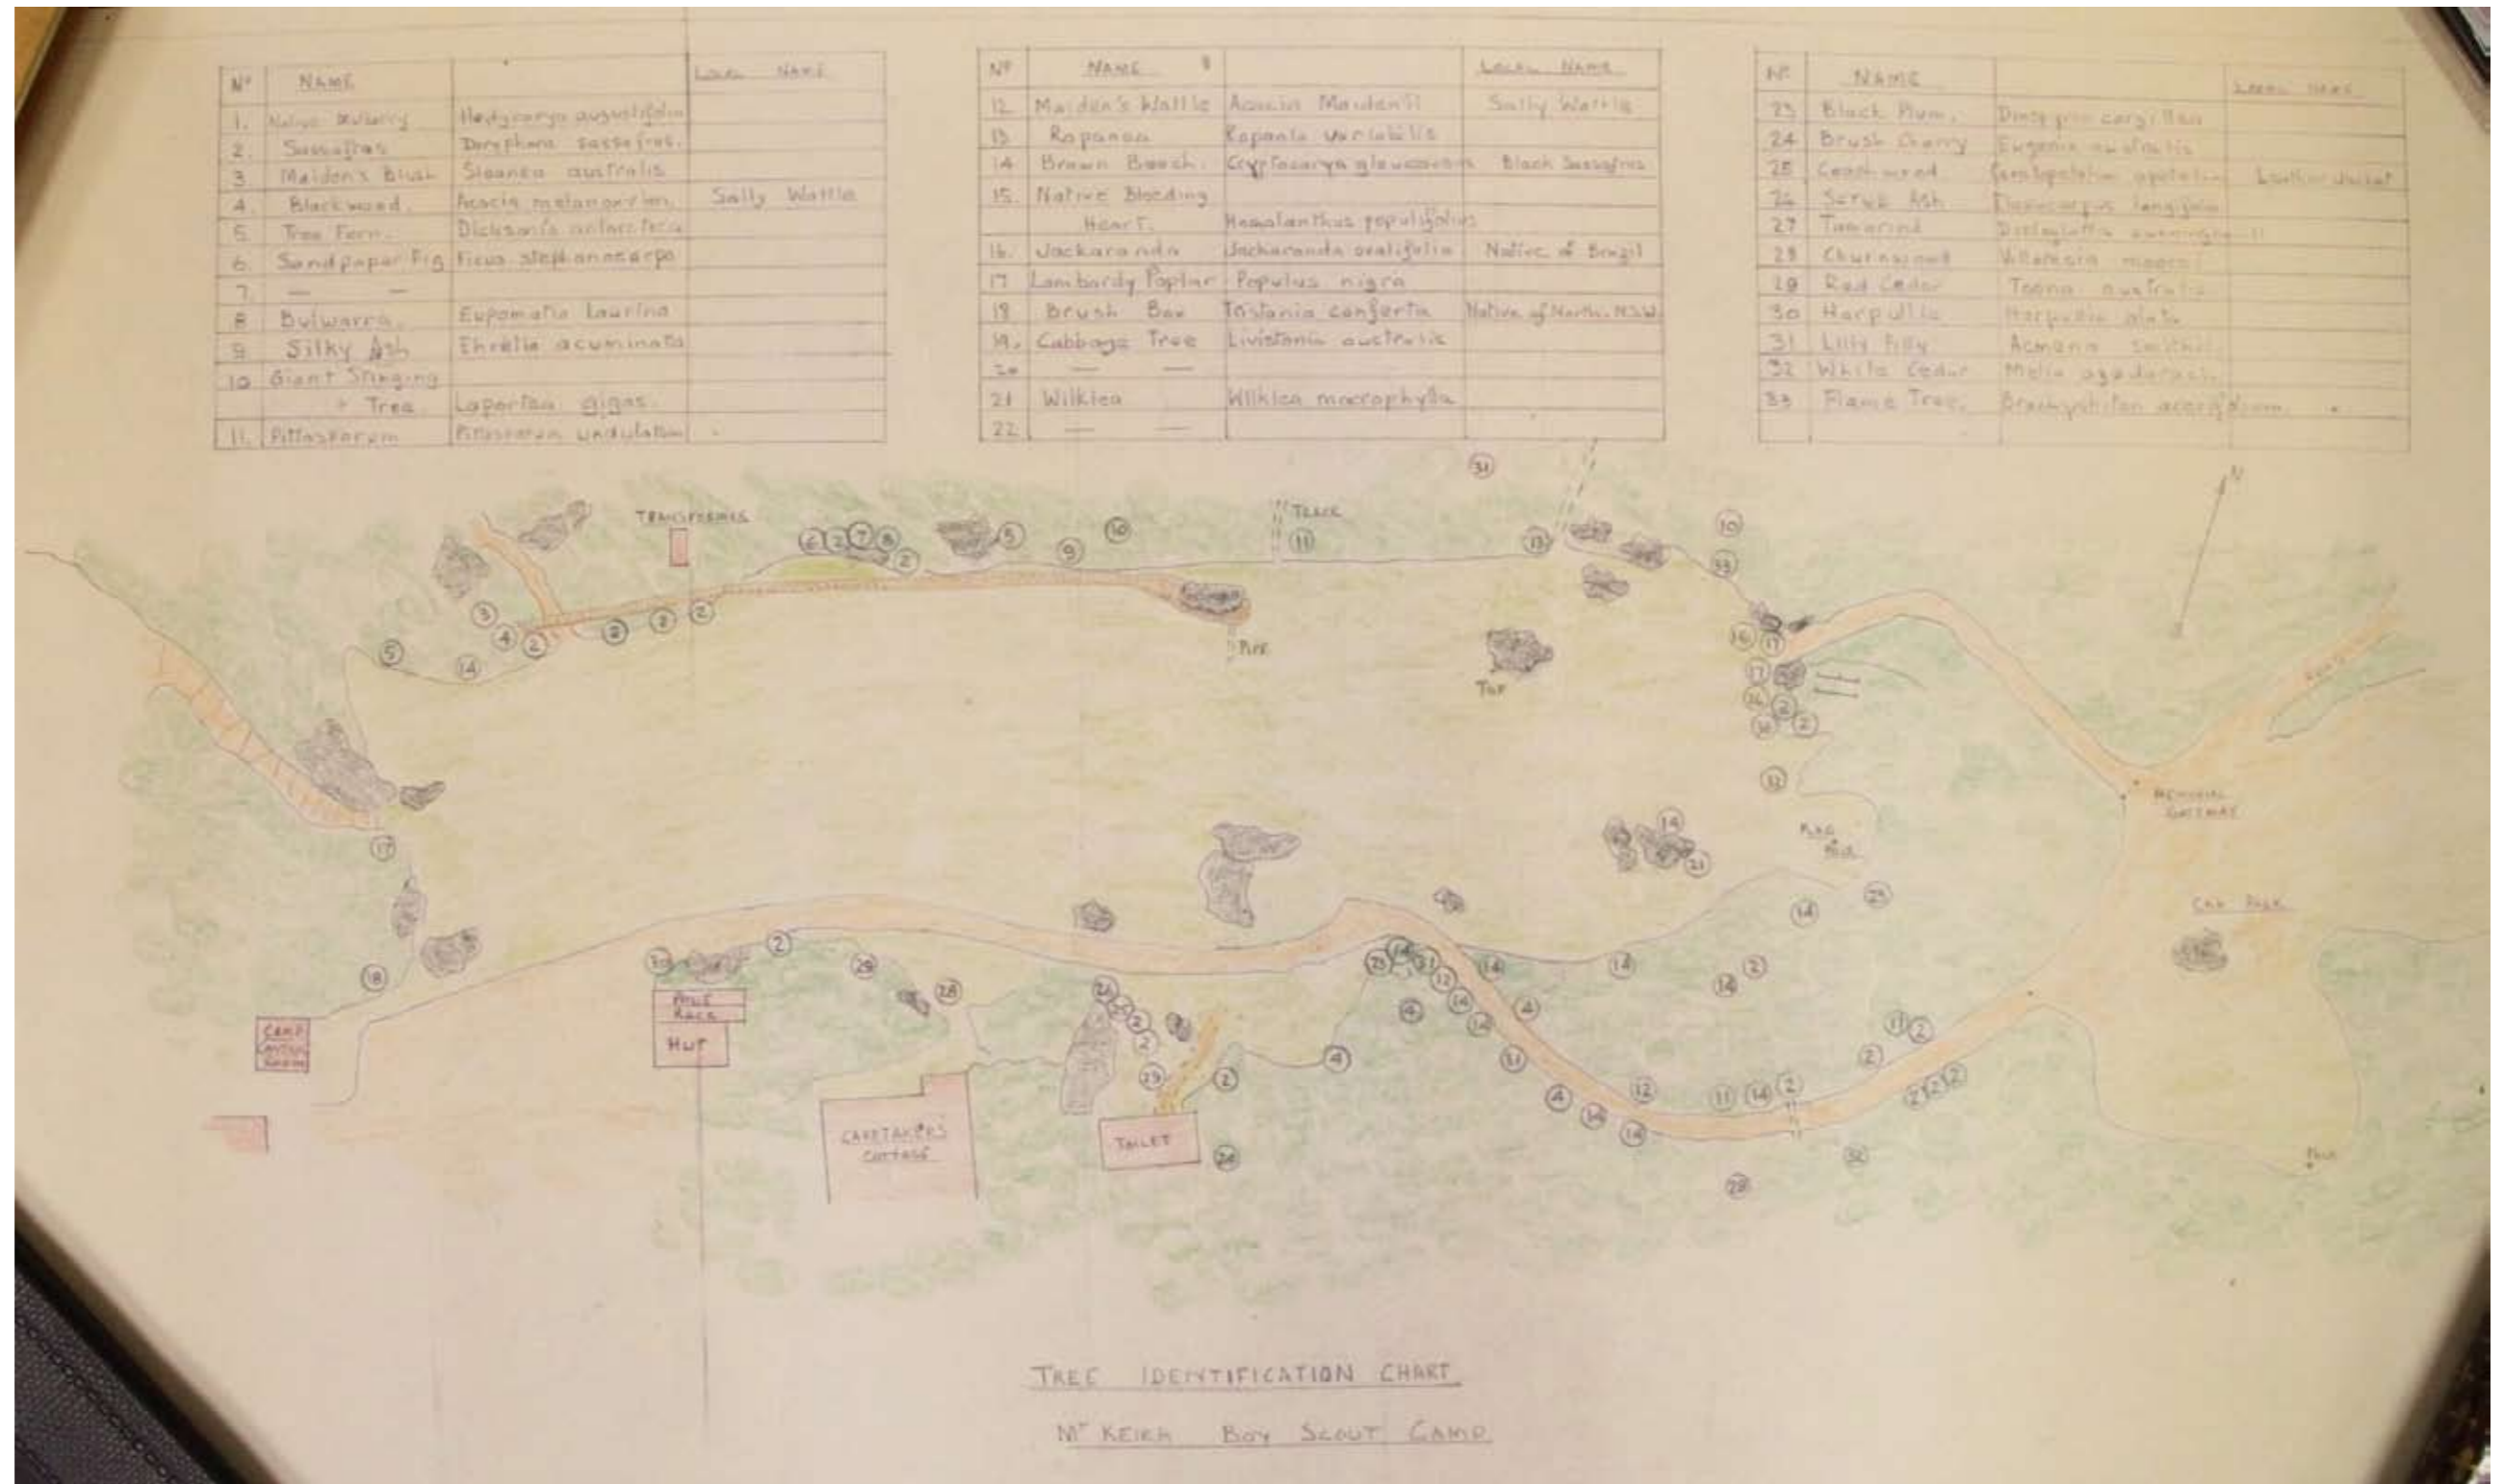 Nº NAME LOCAL NAME
1. Native Mulberry Hedycarya augustifolia
2. Sassafras Doryphora sassafras.
3 Maiden's Blush Sloanea australis
4. Blackwood. Acacia melanoxylon. Sally Wattle
5. Tree Fern. Dicksonia antarctica
6. Sandpaper Fig Ficus stephanocarpa
7. — —
8 Bulwarra. Eupomatia Laurina
9 Silky Ash Ehretia acuminata
10 Giant Stinging
Tree Laportea gigas.
11. Pittosporum Pittosporum undulatum
Nº NAME LOCAL NAME
12 Maiden's Wattle Acacia Maidenii Sally Wattle
13 Rapanea Rapanea variabilis
14 Brown Beech. Cryptocarya glaucescens Black Sassafras
15. Native Bleeding
Heart. Homalanthus populifolius
16. Jackaranda Jackaranda ovalifolia Native of Brazil
17 Lombardy Poplar Populus nigra
18 Brush Box Tristania conferta Native of North. N.S.W.
19. Cabbage Tree Livistonia australis
20 — —
21 Wilkiea Wilkiea macrophylla
22 — —
Nº NAME LOCAL NAME
23 Black Plum.
24 Brush Cherry Eugenia australis
25 Coachwood Ceratopetalum apetalum Leather Jacket
26 Scrub Ash
27 Tamarind
28 Churnwood Villaresia moorei
29 Red Cedar Toona australis
30 Harpullia Harpullia alata
31 Lilly Pilly Acmena smithii
32 White Cedar Melia azedarach
33 Flame Tree. Brachychiton acerifolium.
31
N
TRANSFORMER
TRACK
6 2 7 8 2 5 9 10 11 13 10 33
3 4 2 2 2 2
5 14
PIPE
TAP
16 17
17
2
2
32
ROAD
MEMORIAL
GATEWAY
FLAG
POLE
14
21
17
14 23
CAR PARK
18
30 2 29 28
14 14 2
14
CAMP
POLE
RACK
HUT
26
2
2
23 2 4
4
21 12 14 14 4
31 4 14 14 12
11 14 2
2 11 2
2 2 2
CARETAKERS
COTTAGE
TOILET
28
32
TREE IDENTIFICATION CHART
MT KEIRA BOY SCOUT CAMP